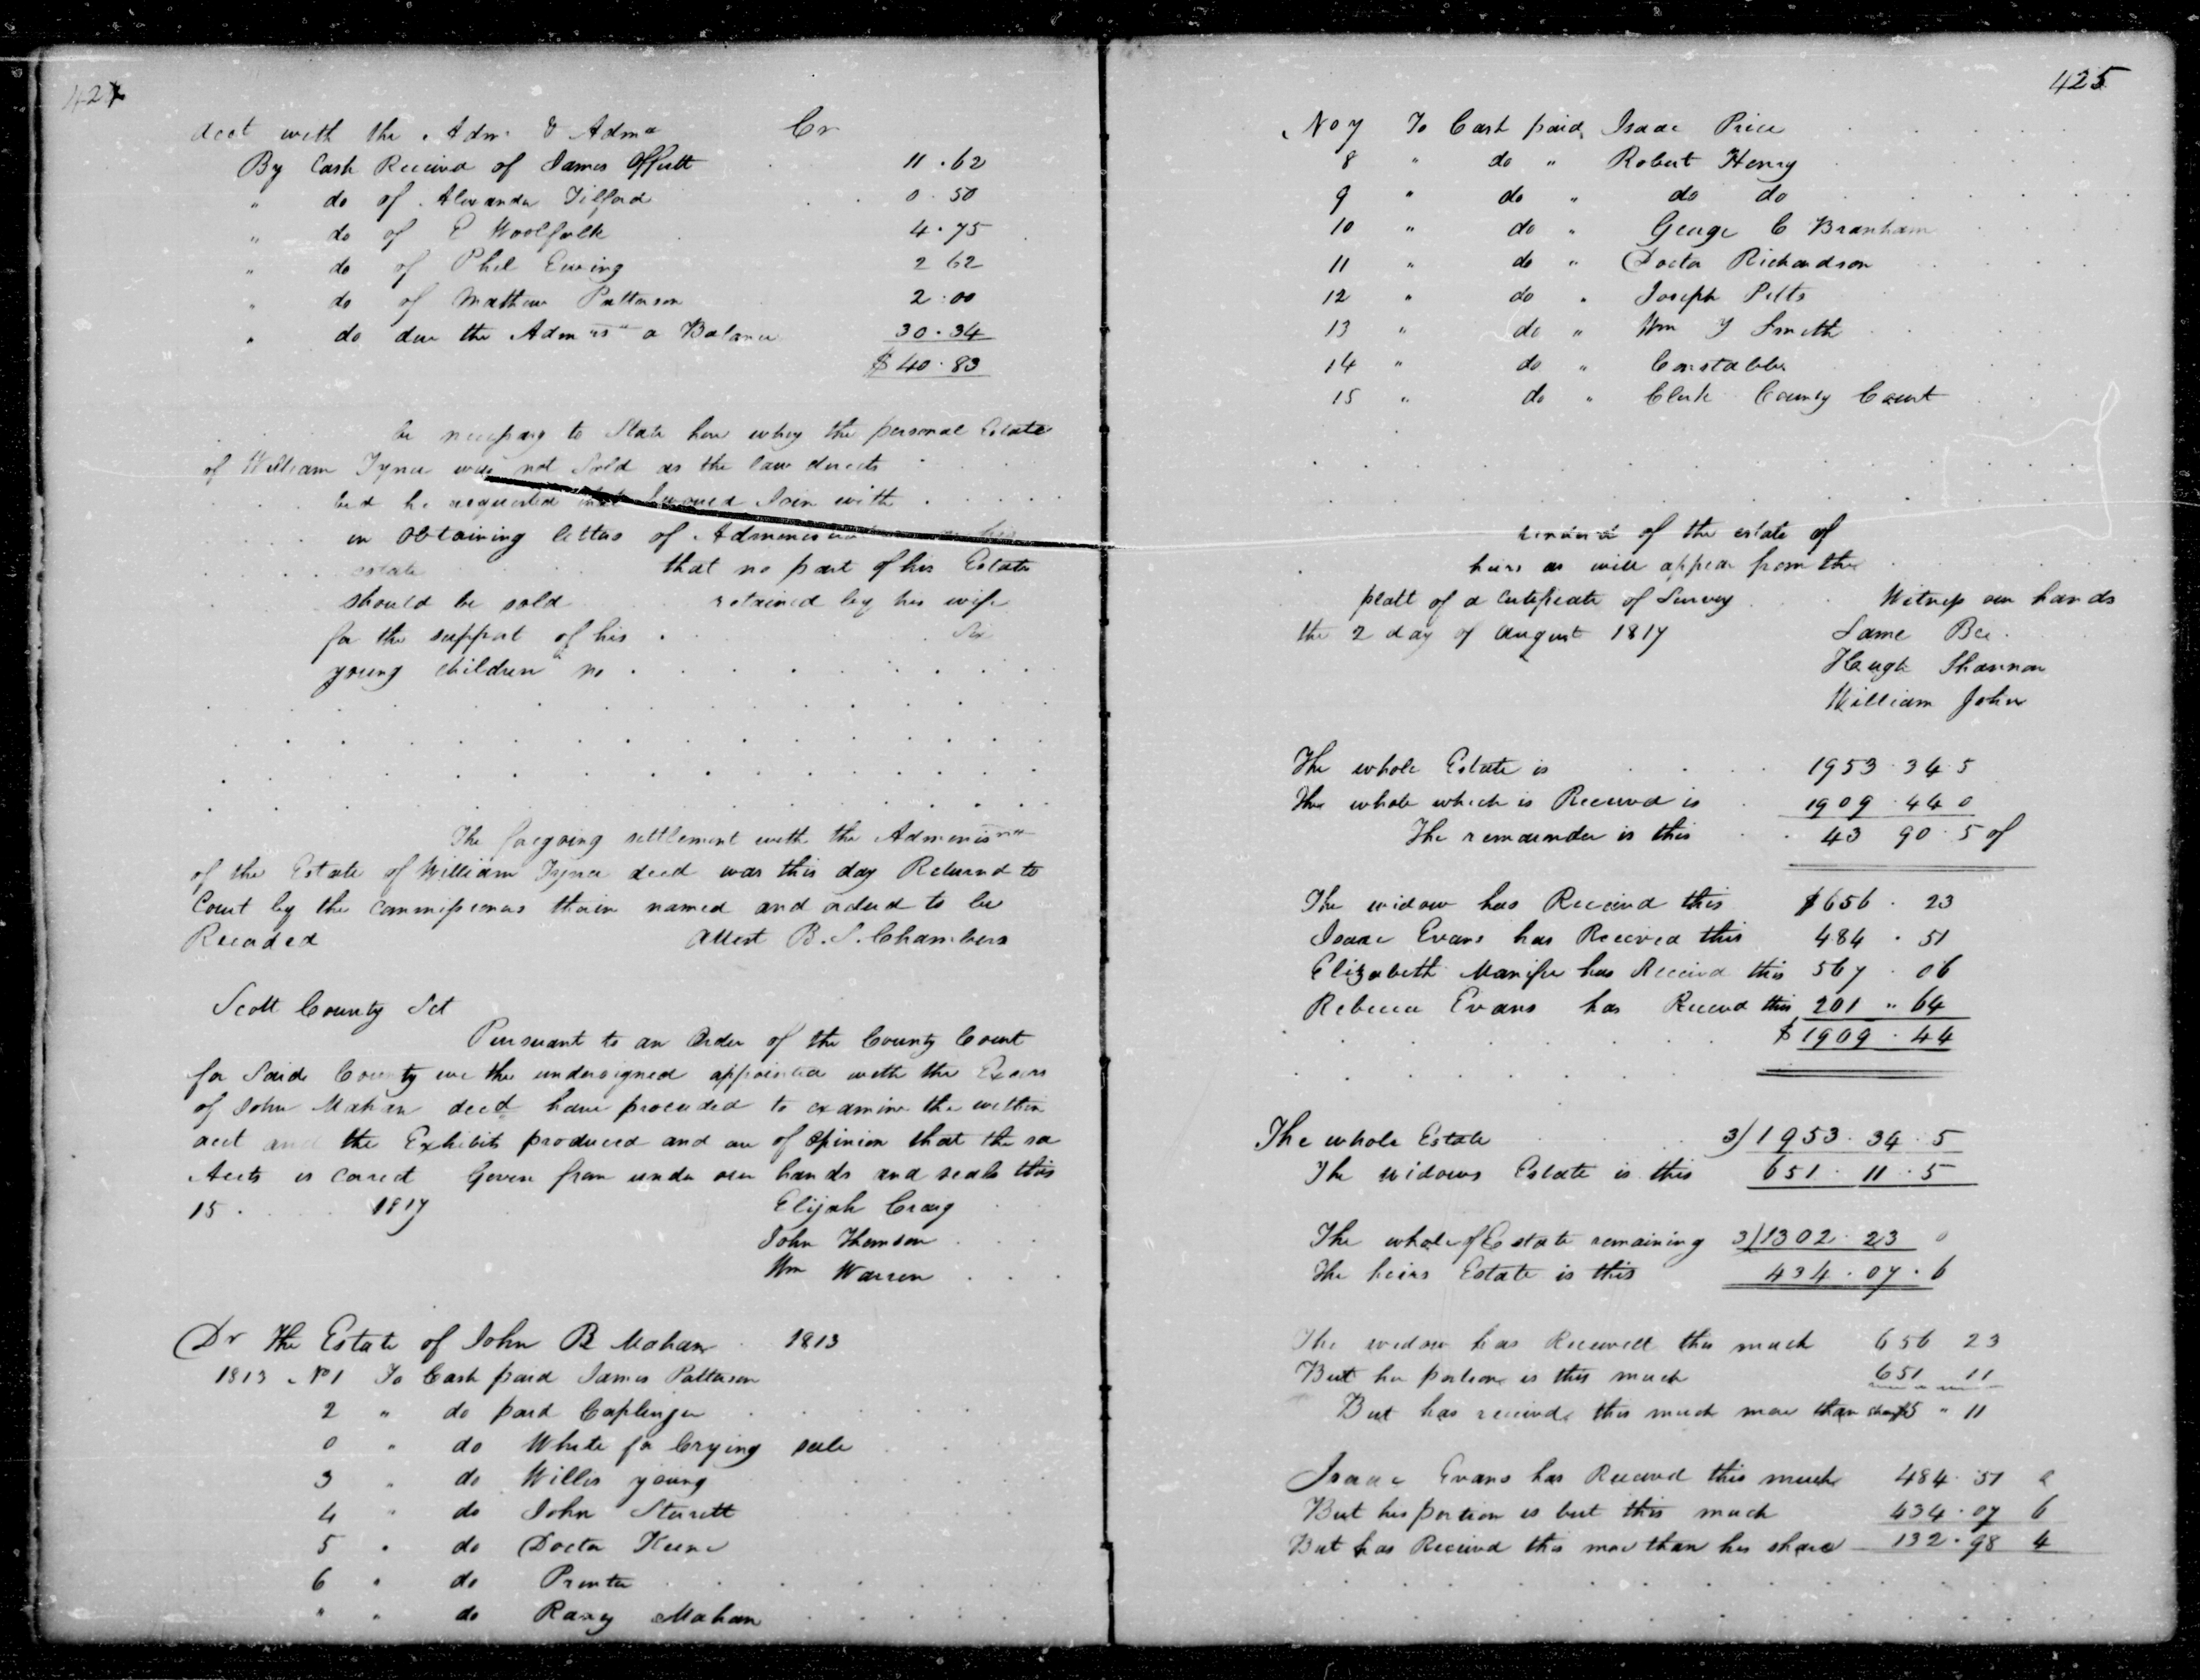 424
dect with the Adm. & Adma Cr
By Cash Receivd of James Offutt 11.62
" do of Alexander Tilford 0.50
" do of E Woolfolk 4.75
" do of Phil Ewing 2 62
" do of Mathew Patterson 2.00
" do due the Admrs a Balance 30.34
$40.83
be necessary to State here why the personal Estate
of William Tyner was not Sold as the law directs
bed he requested that Join with
in Obtaining letters of
estate that no part of his Estate
should be sold retained by his wife
for the support of his Six
young children no
The foregoing settlement with the
of the Estate of William Tyner decd was this day Returnd to
Court by the Commissioners thairin named and orderd to be
Recorded Attest B. S. Chambers
Scott County Sct
Pursuant to an Order of the County Court
for Said County we the undersigned appointed with the Exors
of John Mahan decd have proceeded to examine the within
acct and the Exhibits produced and are of Opinion that the sa
Accts is Correct Given from under our hands and seals this
15. 1817 Elijah Craig
John Thomson
Wm Warren
Dr The Estate of John B Mahan 1813
1813 No 1 To Cash paid James Patterson
2 " do paid Caplinger
0 " do White for Crying sale
3 " do Willis young
4 " do John Sterrett
5 " do Doctor Keene
6 " do Printer
" " do Raxy Mahan
425
No 7 To Cash paid Isaac Price
8 " do " Robert Henry
9 " do " do do
10 " do " George C Branham
11 " do " Doctor Richardson
12 " do " Joseph Pitts
13 " do " Wm Y Smith
14 " do " Constables
15 " do " Clerk County Court
of the estate of
heirs as will appear from the
platt of a Certificate of Survey Witness our hands
the 2 day of August 1817 Same Bee.
Haugh Shannon
William John
The whole Estate is 1953.34.5
The whole which is Received is 1909.44 0
The remainder is this 43 90.5 of
The widow has Received this $656.23
Isaac Evans has Received this 484.51
Elizabeth has Received this 567.06
Rebecca Evans has Receivd this 201 " 64
$1909.44
The whole Estate 3/1953.34.5
The widows Estate is this 651.11.5
The whole of Estate remaining 3/1302.23 0
The heirs Estate is this 434.07.6
The widow has Received this much 656 23
But her portion is this much 651 11
But has receivd this much more than 5 " 11
Isaac Evans has Received this much 484.51
But his portion is but this much 434.07 6
But has Received this more than his share 132.98 4